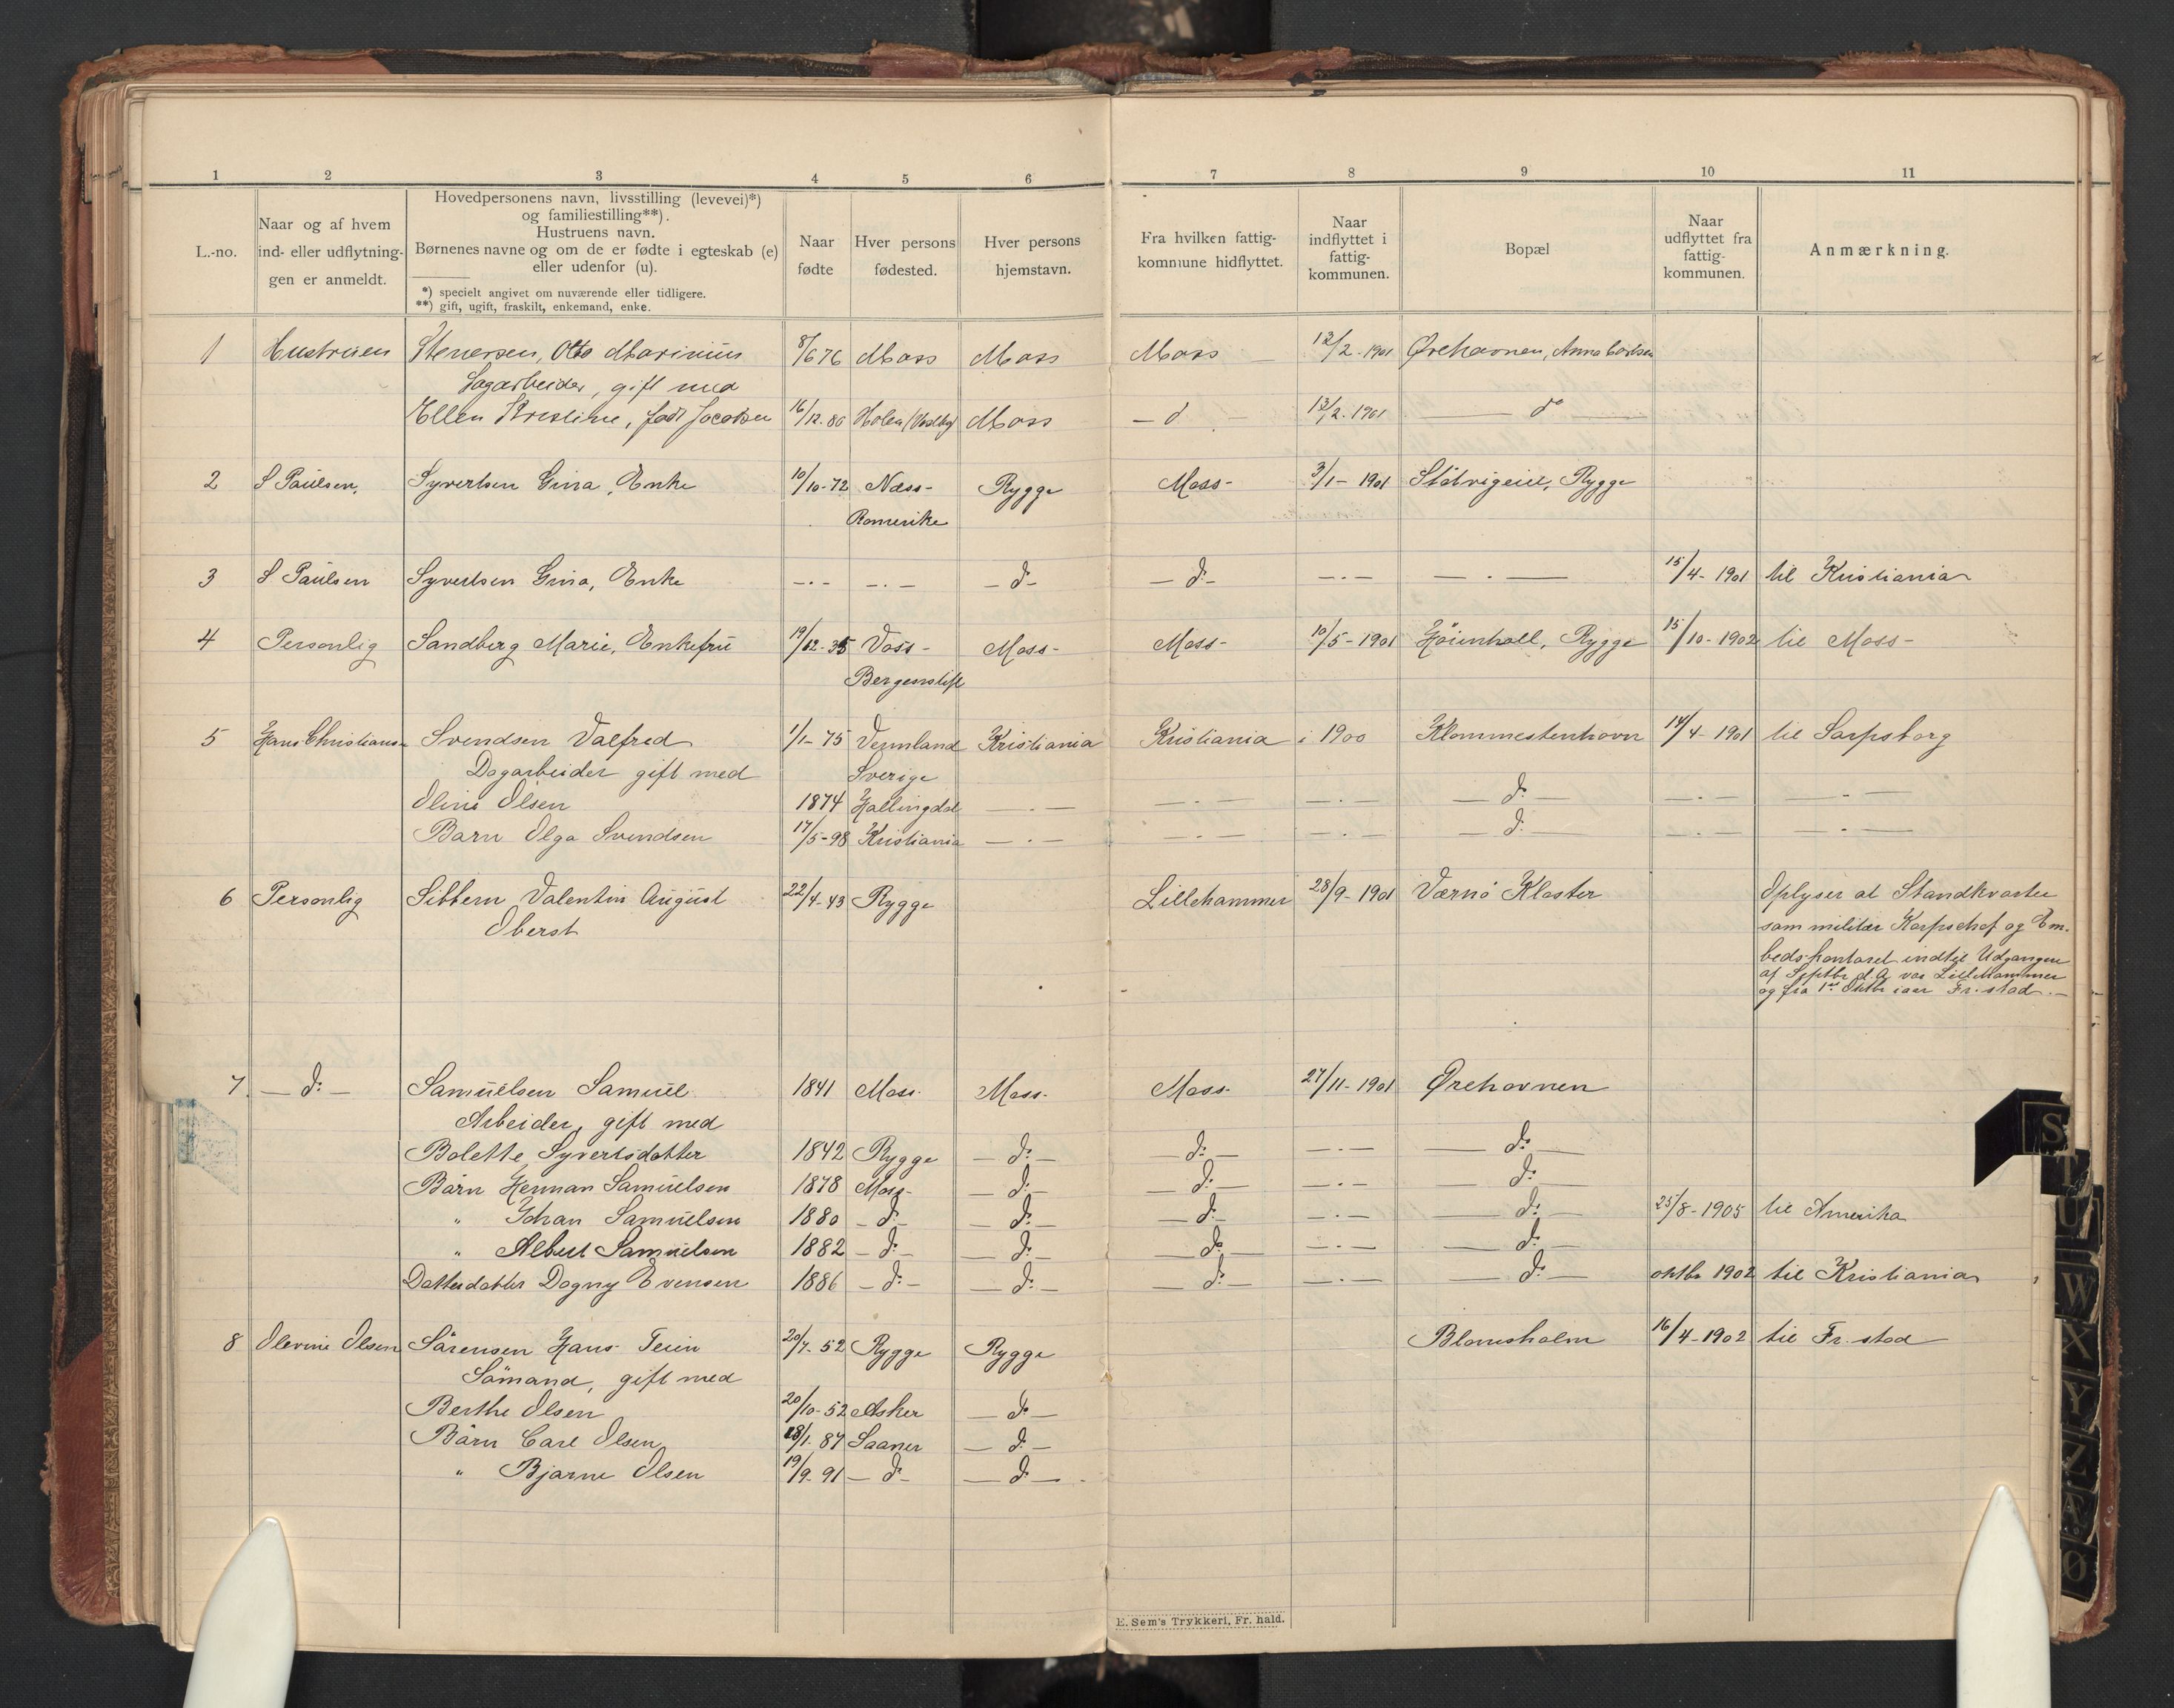 1 2 3 4 5 6 7 8 9 10 11
L.-no.
Naar og af hvem
ind- eller udflytnin-
gen er anmeldt.
Hovedpersonens navn, livsstilling (levevei)*)
og familiestilling**).
Hustruens navn.
Børnenes navne og om de er fødte i egteskab (e)
eller udenfor (u).
*) specielt angivet om nuværende eller tidligere.
**) gift, ugift, fraskilt, enkemand, enke.
Naar
fødte
Hver persons
fødested.
Hver persons
hjemstavn.
Fra hvilken fattig-
kommune hidflyttet.
Naar
indflyttet i
fattig-
kommunen.
Bopæl
Naar
udflyttet fra
fattig-
kommunen.
Anmærkning.
1 Hustruen Stenersen, Otto Marinius 8/6 76 Moss Moss Moss 12/2-1901 Ørehavnen, Anna Carlsen
Sagarbeider, gift med
Ellen Kristine, født Jacobsen 16/12.80 Holen (Vestby) Moss — d 13/2.1901 — do —
2 S Paulsen, Syvertsen Gina, Enke 10/10-72 Næss- Rygge Moss- 3/1-1901 Rygge
Romerike
3 S Paulsen Syvertsen Gina, Enke -.- -.- -d:- -d:- -.- — . — 15/4-1901 til Kristiania
4 Personlig Sandberg Marie, Enkefru 19/12-35 Voss- Moss- Moss- 10/5-1901 Høienhall, Rygge 15/10-1902 til Moss-
Bergenstift
5 Hans Christians- Svendsen Valfred 1/1-75 Vermland Kristiania Kristiania i 1900 Klommestenhavn 14/4-1901 til Sarpsborg
Dagarbeider gift med Sverige
Oline Olsen 1874 Hallingdal — . — — . — — . — — d: — — . — — . —
Barn Olga Svendsen 17/5-98 Kristiania — . — — . — — . — — d: — — . — — . —
6 Personlig Sibbern Valentin August 22/4-43 Rygge Lillehammer 28/9-1901 Værnø Kloster Oplyser at Standkvarter
Oberst som militær Korpschef og Em-
bedskontoret indtil Udgangen
af Septbr d.A. var Lillehammer
og fra 1st Oktbr iaar Fr.stad.-
7. — d: — Samuelsen Samuel 1841 Moss. Moss. Moss. 27/11-1901 Ørehavnen
Arbeider, gift med
Bolette Syvertsdatter 1842 Rygge — d: — — d: — — . — — d: —
Barn Herman Samuelsen 1878 Moss- — d: — — d: — — . — — d: —
" Johan Samuelsen 1880 — d: — — d: — — d: — — . — — d: — 25/8-1905 til Amerika
" Albert Samuelsen 1882 — d: — — d: — — d: — — . — — d: —
Datterdatter Dagny Evensen 1886 — d: — — d: — — d: — — . — — d: — oktbr 1902 til Kristiania
8 Olevine Olsen Sørensen Hans Teien 20/7-52 Rygge Rygge Blomsholm 16/4-1902 til Fr.stad
Sömand, gift med
Berthe Olsen 20/10-52 Asker — d: —
Barn Carl Olsen 28/1 87 Saaner — d: —
" Bjarne Olsen 19/9-91 — d: — — d: —
E. Sem's Trykkeri, Fr. hald.
S
T
U
W
X
Y
Z
Æ
Ø